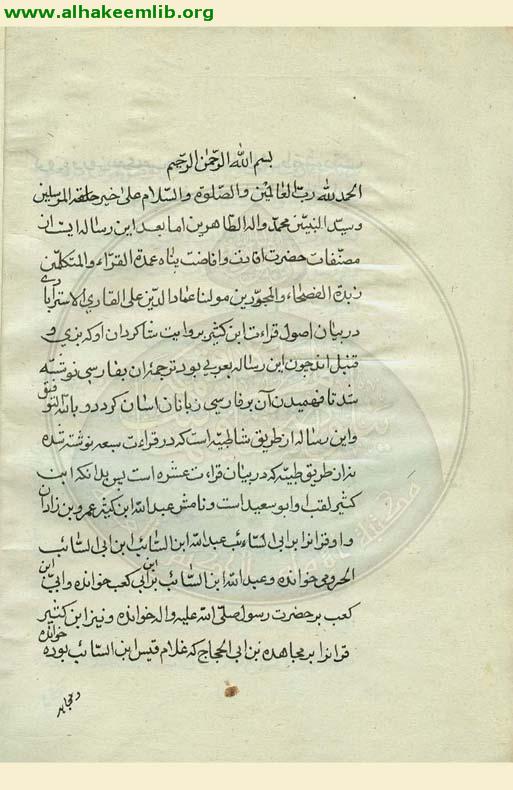 www.alhakeemlib.org
بسم الله الرحمن الرحیم
الحمد لله رب العالمین والصلوة والسلام علی خیر خلقه المرسلین
وسید النبیین محمد واله الطاهرین اما بعد این رساله ایست از
مصنفات حضرت افادت وافاضت پناه عمدة القراء والمتکلمین
زبدة الفصحاء والمجودین مولنا عماد الدین علی القاری الاسترابادی
در بیان اصول قراءت ابن کثیر بروایت شاکردان او که بزی و
قنبل اند چون این رساله بعربی بود ترجمه ان بفارسی نوشته
شد تا فهمیدن آن بر فارسی زبانان اسان کردد وبالله التوفیق
واین رساله از طریق شاطبیه است که در قراءت سبعه نوشته شده
نه از طریق طیبه که در بیان قراءت عشره است پس بدانکه ابن
کثیر لقب او ابو سعید است ونامش عبدالله ابن کثیر عمرو بن زادان
واو قرانرا بر ابی السائب عبدالله ابن السائب ابن ابی السائب
المخزومی خوانده وعبدالله ابن السائب بر ابی ابن کعب خوانده وابی ابن
کعب بر حضرت رسول صلی الله علیه واله خوانده ونیز ابن کثیر
قرانرا بر مجاهد بن ابی الحجاج که غلام قیس ابن السائب بوده خوانده
ومجاهد